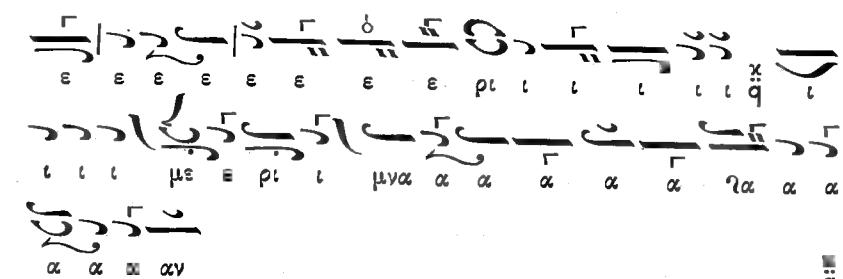 ε ε ε ε ε ε ε ε ρι ι ι ι ι ι ι
ι ι ι με ρι ι μνα α α α α α α α
α α αν